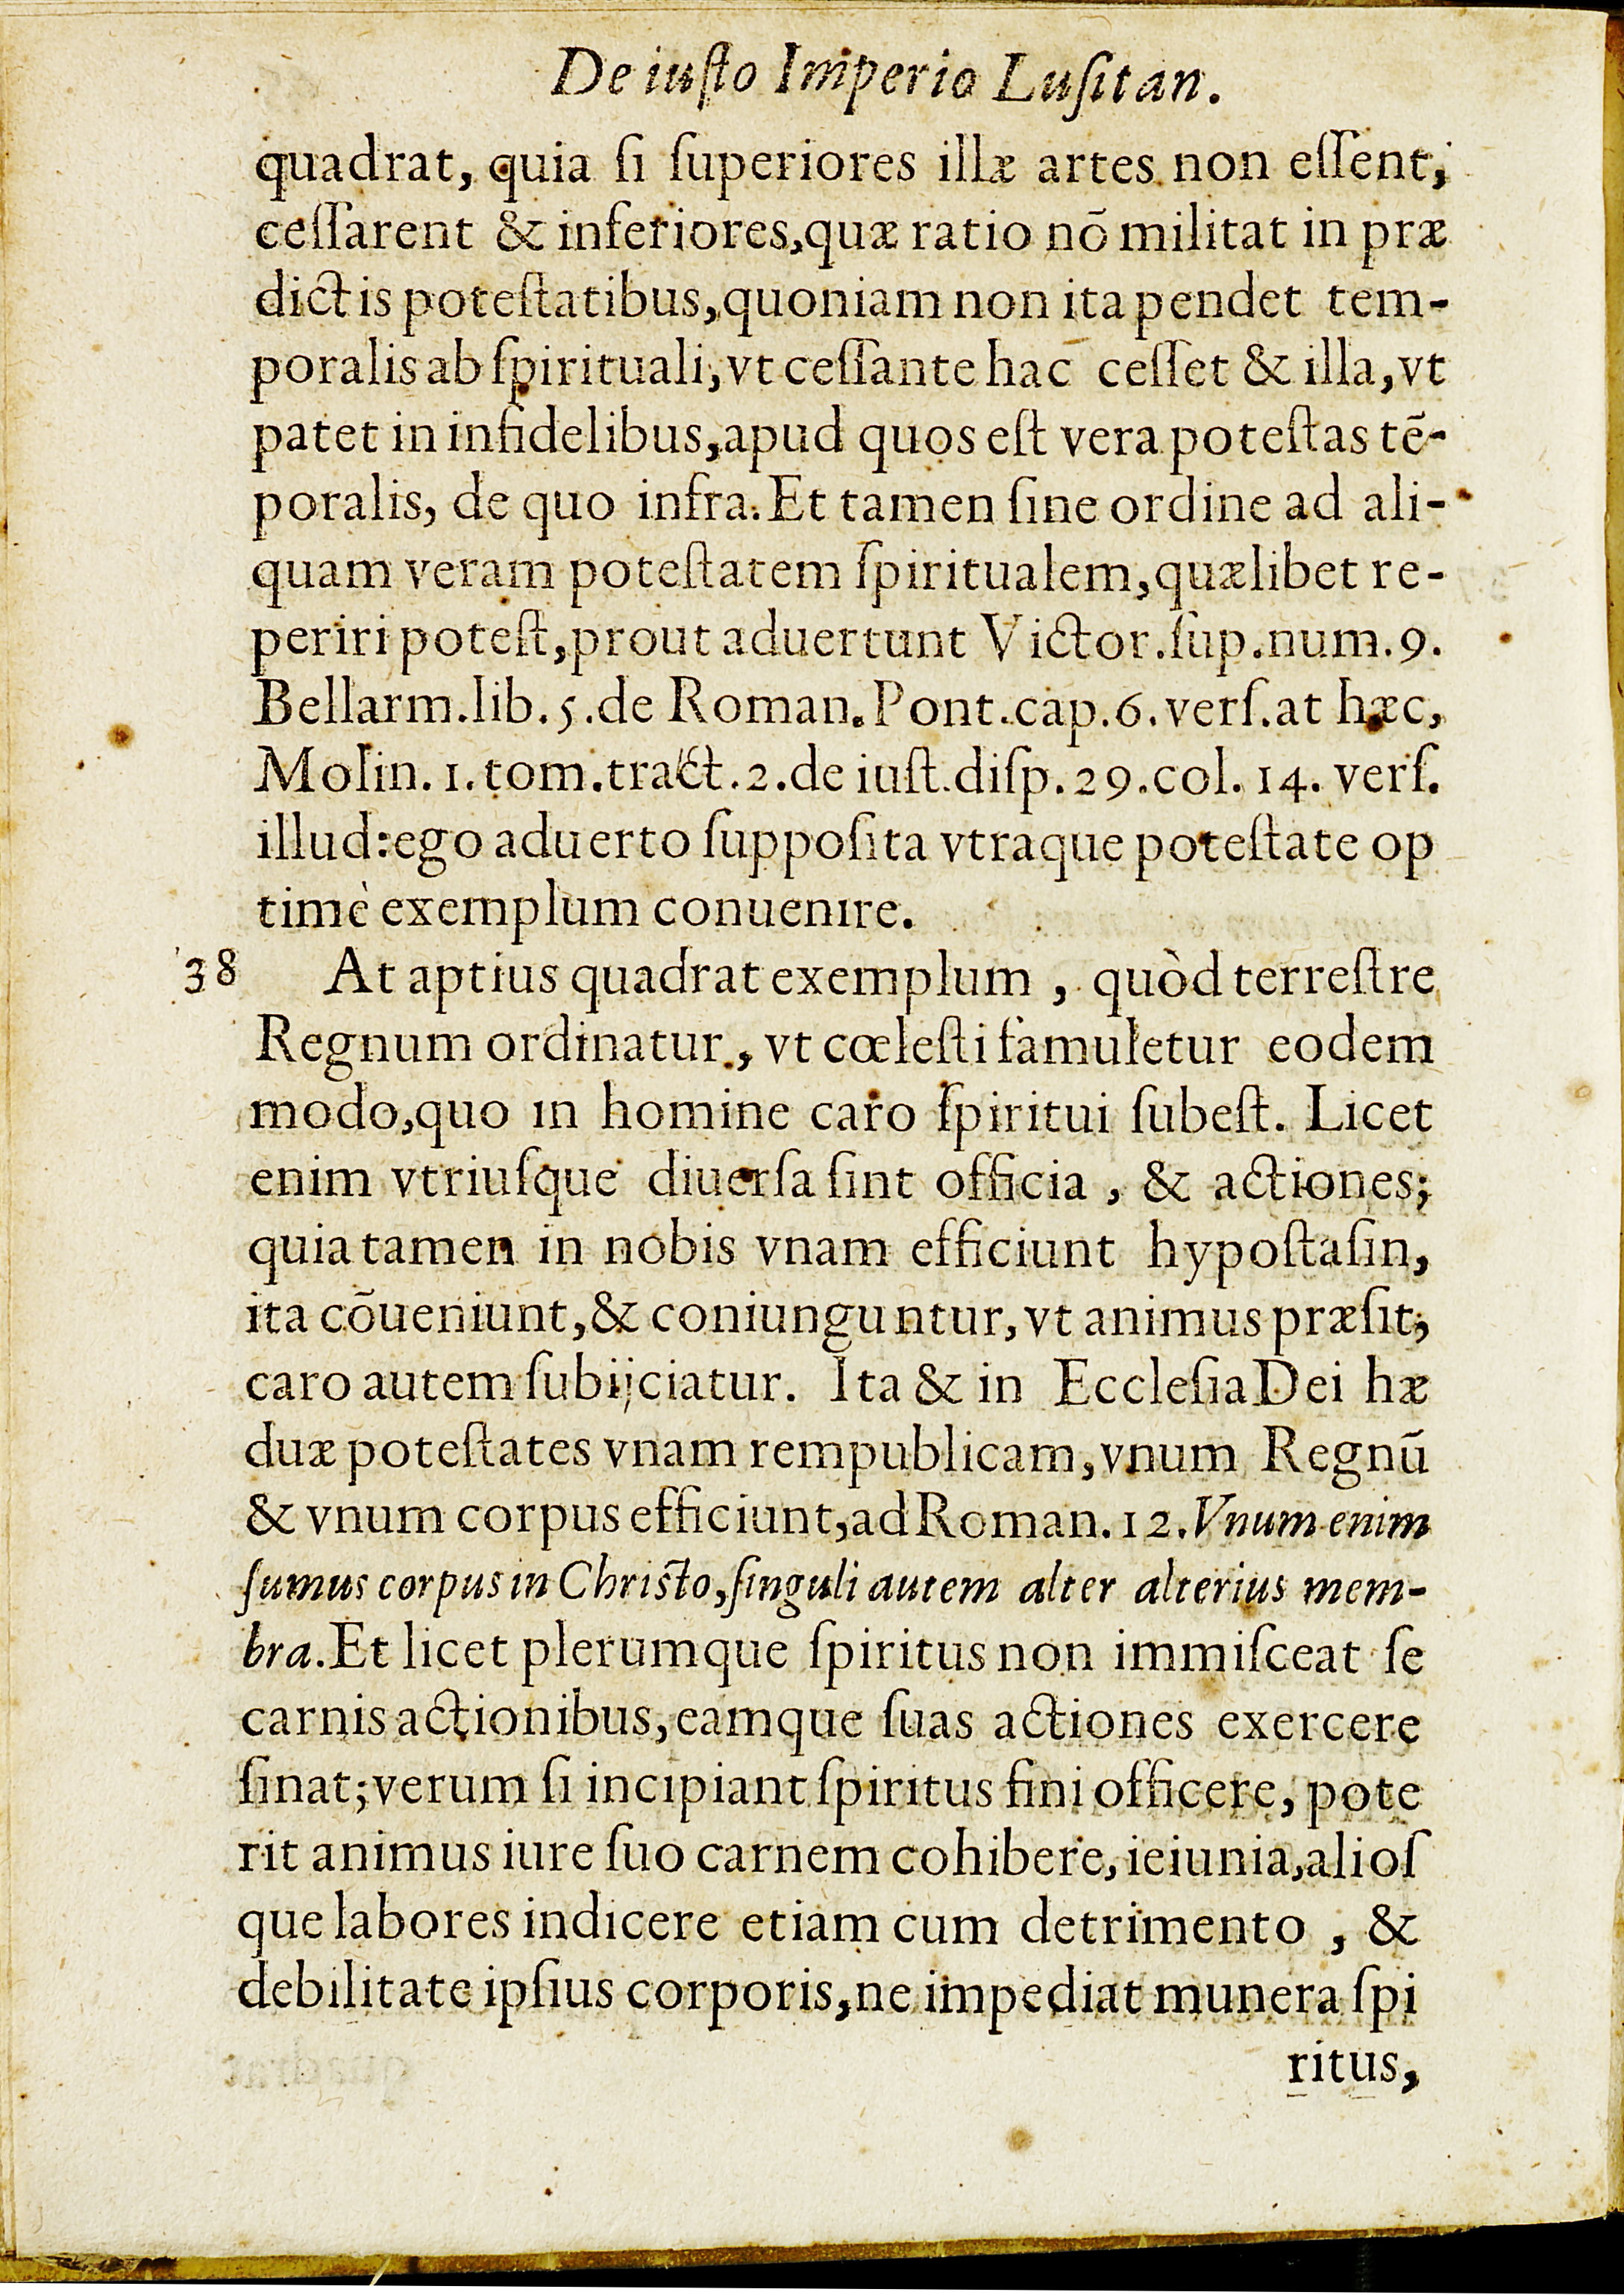 De iuſto Imperio Luſitan.
quadrat, quia ſi ſuperiores illæ artes non eſſent,
ceſſarent & inferiores, quæ ratio nō militat in præ
dictis poteſtatibus, quoniam non ita pendet tem-
poralis ab ſpirituali, vt ceſſante hac ceſſet & illa, vt
patet in infidelibus, apud quos eſt vera poteſtas tē-
poralis, de quo infra. Et tamen ſine ordine ad ali-
quam veram poteſtatem ſpiritualem, quælibet re-
periri poteſt, prout aduertunt Victor. ſup. num. 9.
Bellarm. lib. 5. de Roman. Pont. cap. 6. verſ. at hæc,
Molin. 1. tom. tract. 2. de iuſt. diſp. 29. col. 14. verſ.
illud: ego aduerto ſuppoſita vtraque poteſtate op
timè exemplum conuenire.
38 At aptius quadrat exemplum, quòd terreſtre
Regnum ordinatur, vt cœleſti famuletur eodem
modo, quo in homine caro ſpiritui ſubeſt. Licet
enim vtriuſque diuerſa ſint officia, & actiones;
quia tamen in nobis vnam efficiunt hypoſtaſin,
ita cōueniunt, & coniunguntur, vt animus præſit,
caro autem ſubijciatur. Ita & in Eccleſia Dei hæ
duæ poteſtates vnam rempublicam, vnum Regnū
& vnum corpus efficiunt, ad Roman. 12. Vnum enim
ſumus corpus in Chriſto, ſinguli autem alter alterius mem-
bra. Et licet plerumque ſpiritus non immiſceat ſe
carnis actionibus, eamque ſuas actiones exercere
ſinat; verum ſi incipiant ſpiritus fini officere, pote
rit animus iure ſuo carnem cohibere, ieiunia, alioſ
que labores indicere etiam cum detrimento, &
debilitate ipſius corporis, ne impediat munera ſpi
ritus,